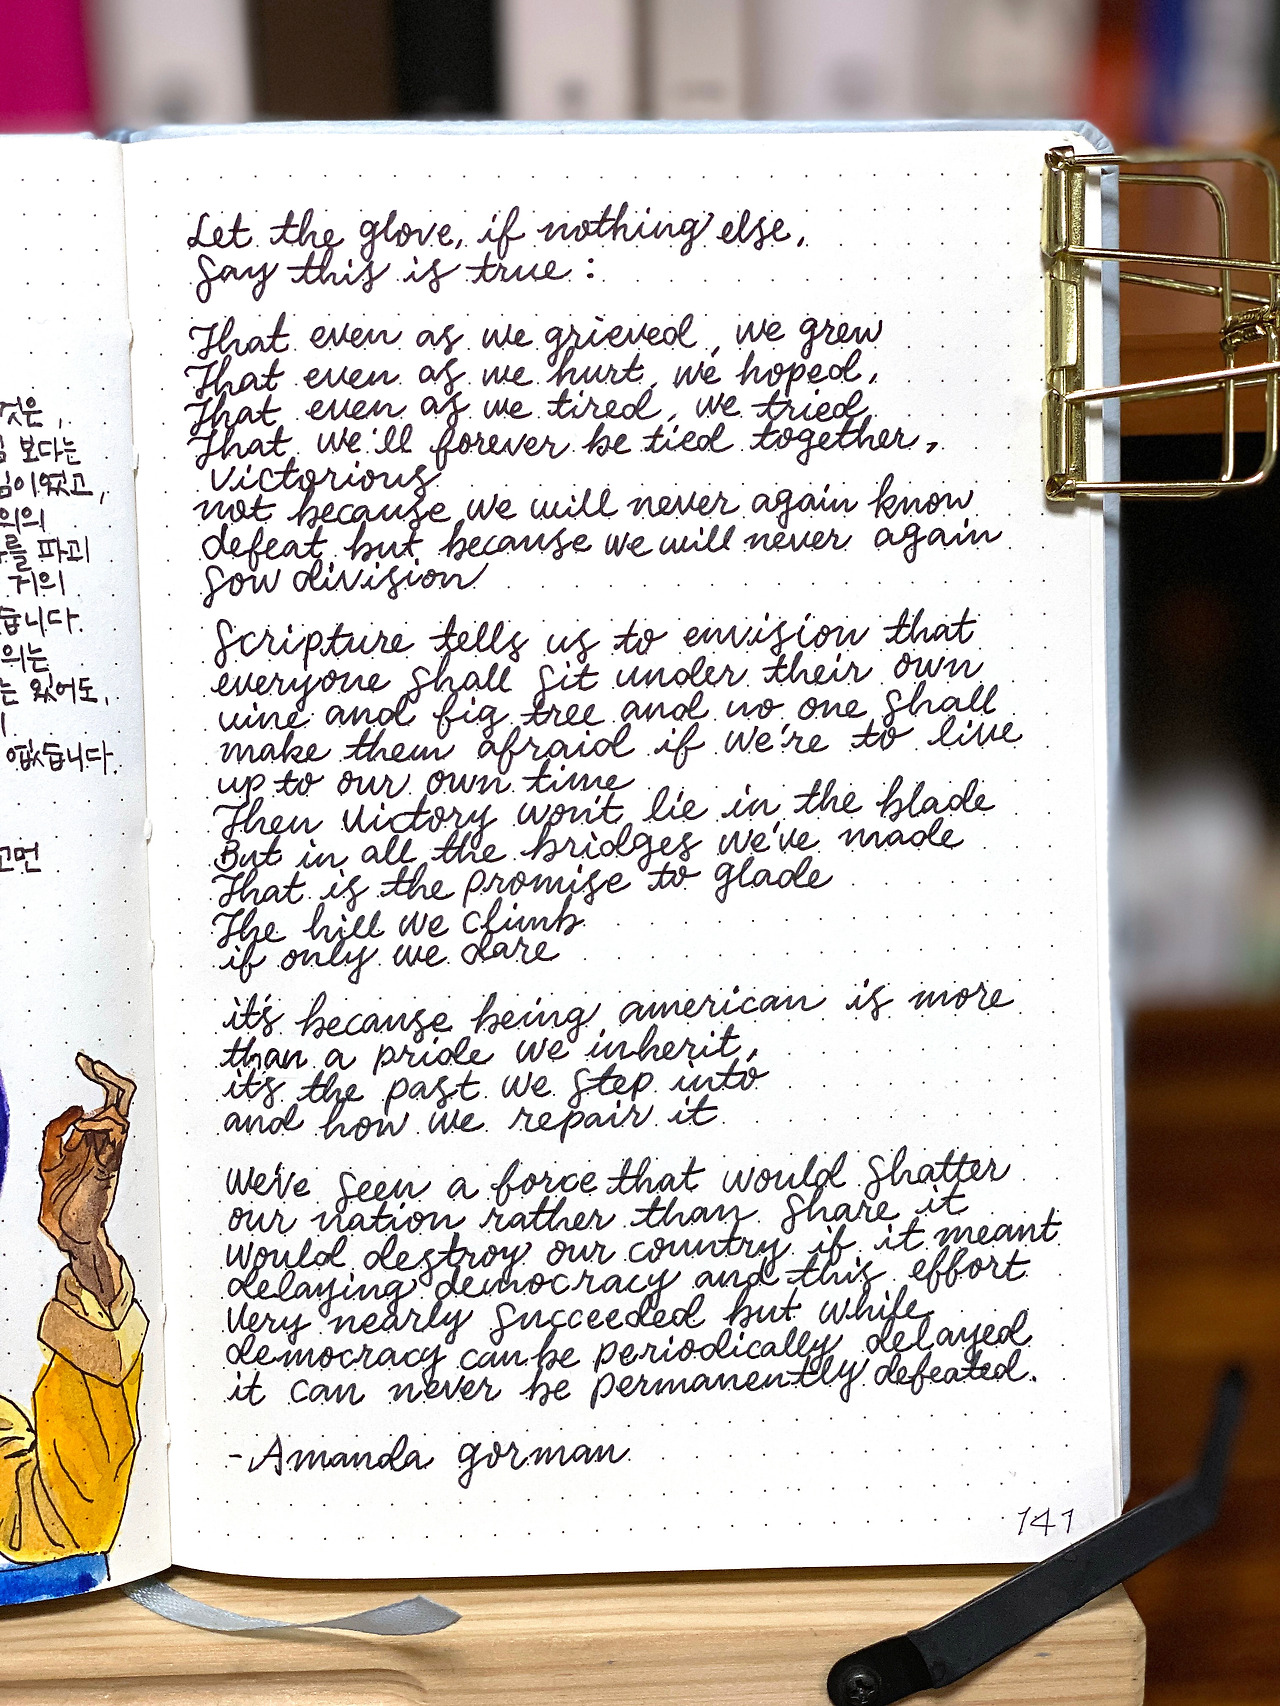 것은,
보다는
힘이었고,
의의
를 파괴
거의
습니다.
의는
는 있어도,
없습니다.
고먼
Let the glove, if nothing else,
Say this is true:
That even as we grieved, we grew
That even as we hurt, we hoped,
That even as we tired, we tried,
That we'll forever be tied together,
Victorious
not because we will never again know
defeat but because we will never again
Sow division
Scripture tells us to envision that
everyone shall sit under their own
vine and fig tree and no one shall
make them afraid if we're to live
up to our own time
Then victory won't lie in the blade
But in all the bridges we've made
That is the promise to glade
The hill we climb
if only we dare
it's because being american is more
than a pride we inherit,
it's the past we step into
and how we repair it
We've seen a force that would shatter
our nation rather than share it
Would destroy our country if it meant
delaying democracy and this effort
Very nearly succeeded but while
democracy can be periodically delayed
it can never be permanently defeated.
-Amanda gorman
141